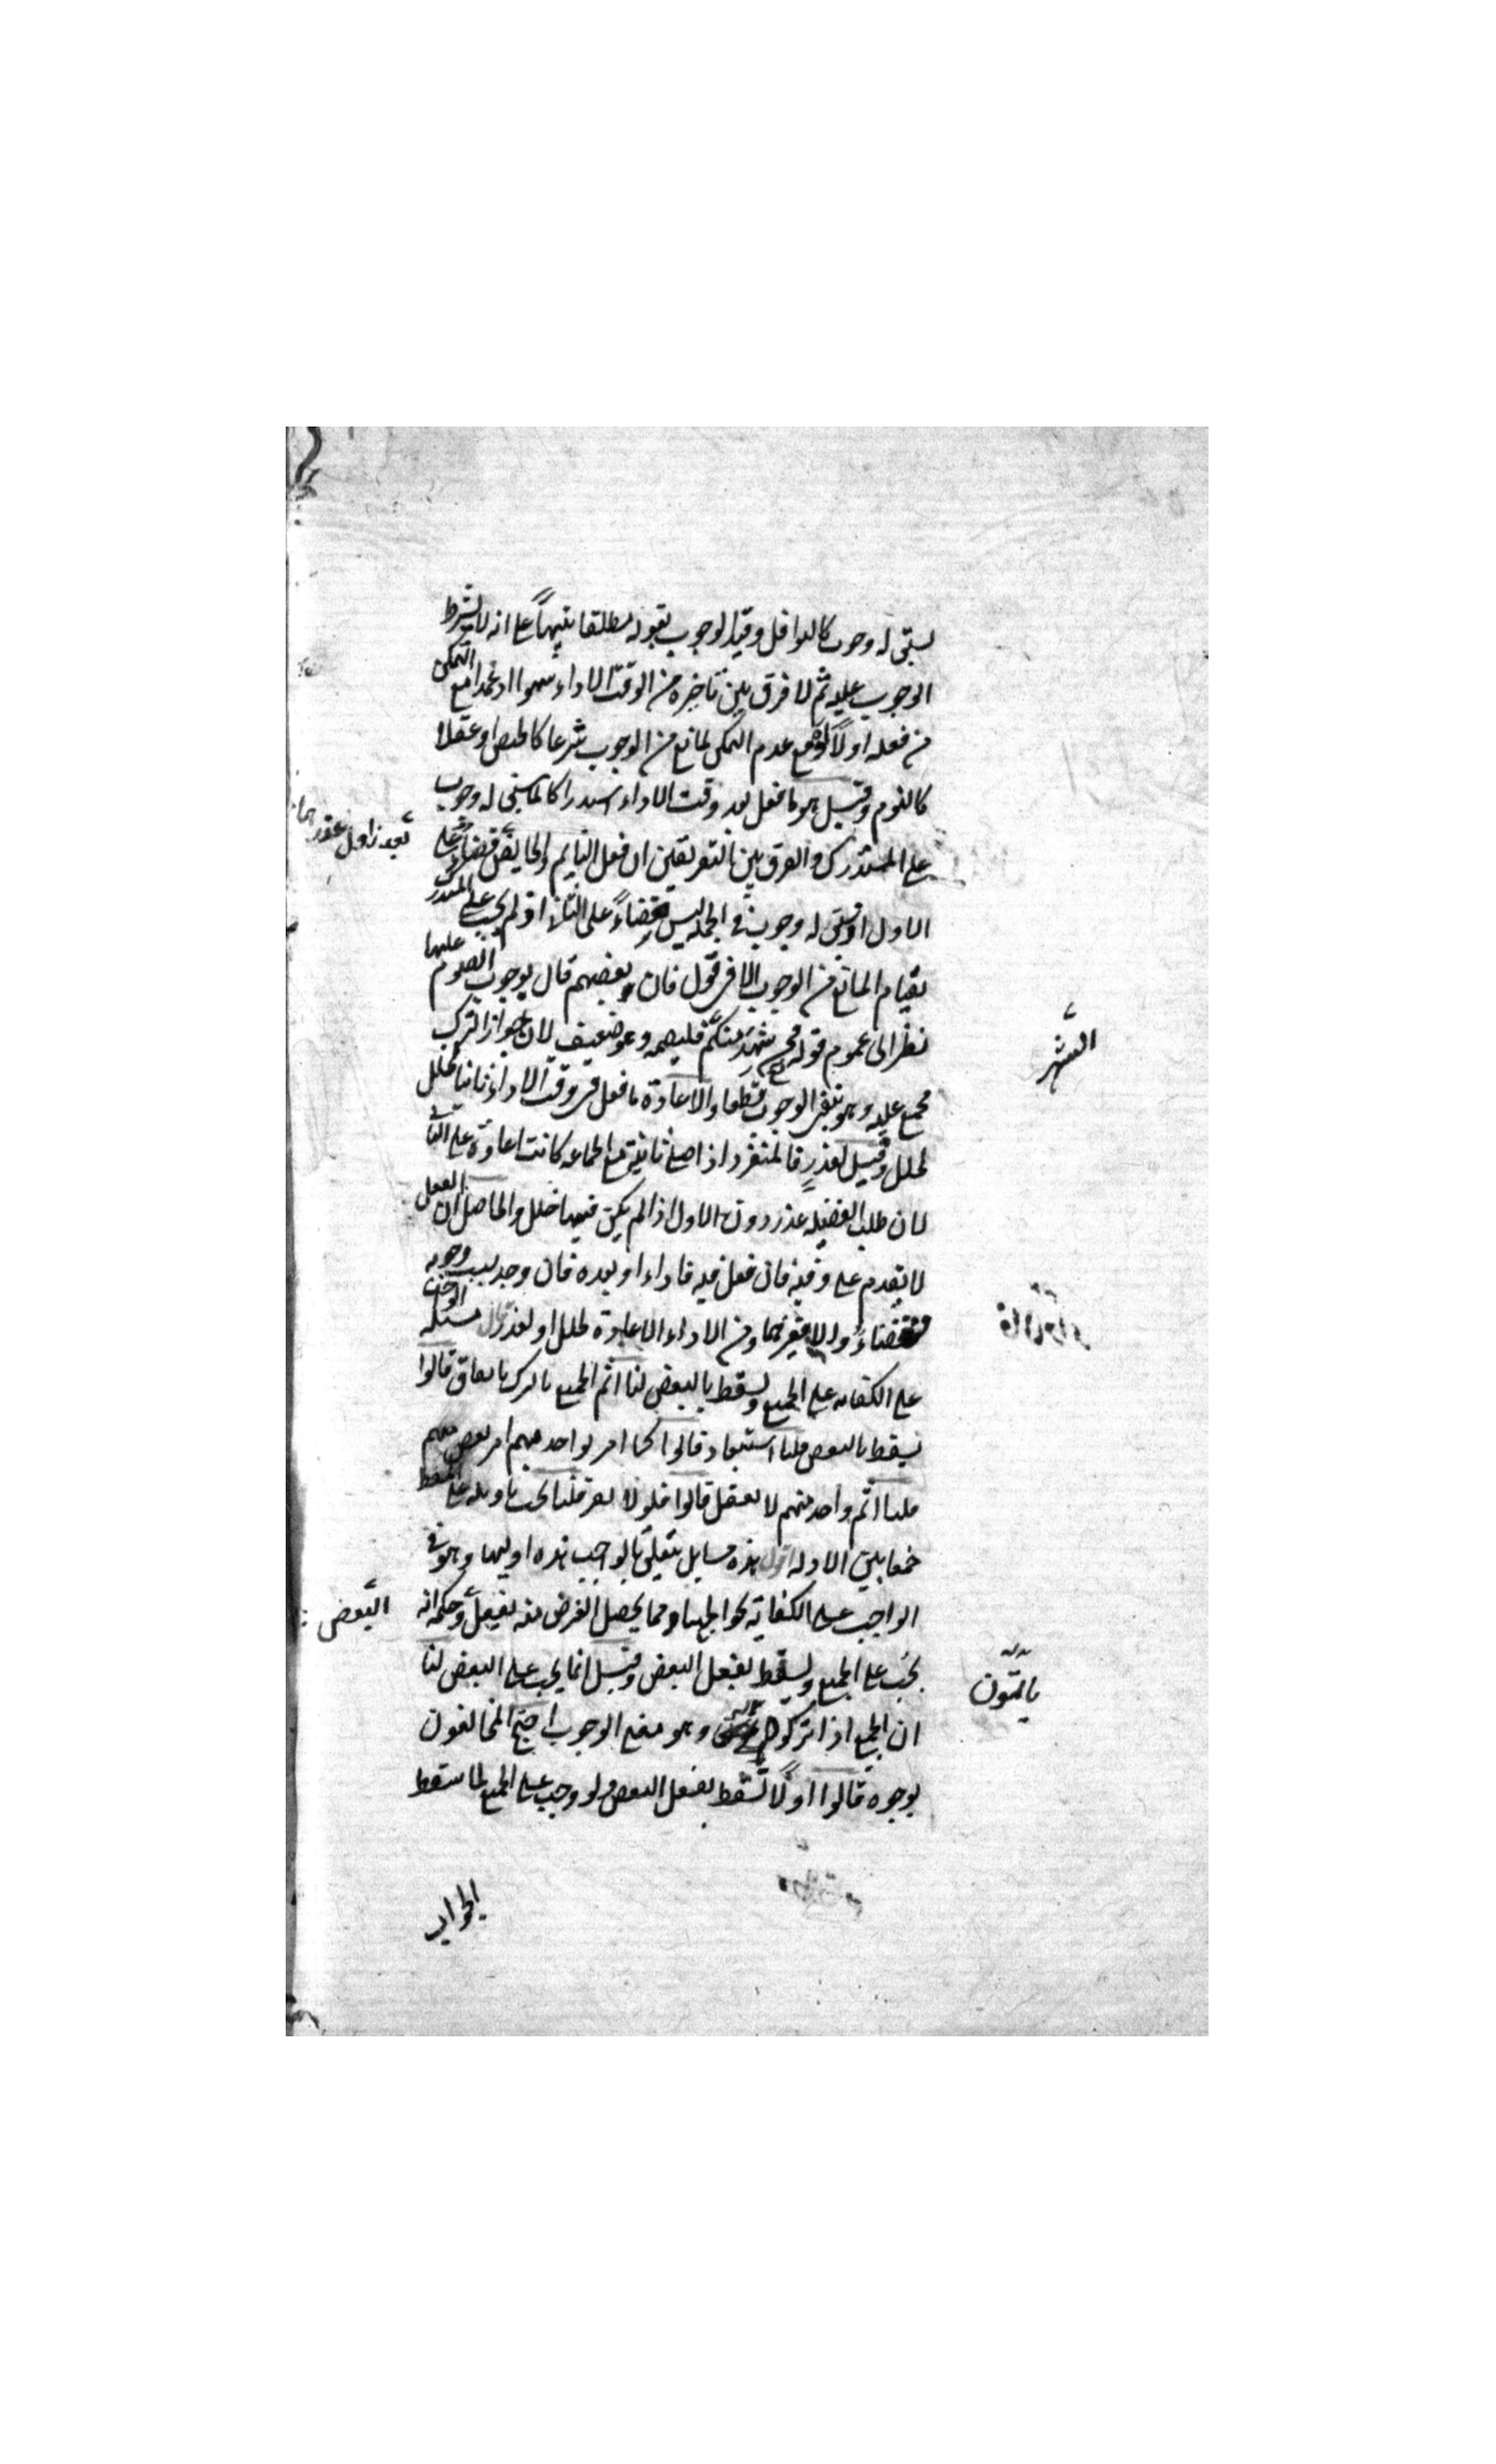 يسبق له وجوب كالنوافل وقيد الوجوب بقوله مطلقا تنبيهاً على انه لا يشترط
الوجوب عليه ثم لا فرق بين تاخيره من الوقت الاداء سهوا او عمدا مع التمكن
من فعله اولاً او مع عدم التمكن لمانع من الوجوب شرعا كالحيض او عقلا
كالنوم وقيل هو ما فعل بعد وقت الاداء استدراكا لما سبق له وجوب
على المستدرك والفرق بين التعريفين ان فعل النايم والحايض قضاء على
الاول اذ سبق له وجوب في الجملة ليس قضاءً على الثاني اذ لم يجب على المستدرك
بقيام المانع من الوجوب الا في قول فان بعضهم قال بوجوب الصوم عليها
نظرا الى عموم قوله فمن شهد منكم فليصمه وهو ضعيف لان جواز الترك
مجمع عليه وهو ينفى الوجوب قطعا والاعادة ما فعل فى وقت الاداء ثانيا لخلل
لخلل وقيل لعذر فالمنفرد اذا صلى ثانية مع الجماعه كانت اعادة على الثانى
لان طلب الفضيله عذر دون الاول اذا لم يكن فيها خلل والحاصل ان الفعل
لا يقدم على وقته فان فعل فيه فاداء او بعده فان وجد سبب وجوبه
فقضاء والا فغيرهما ومن الاداء الاعادة لخلل او لعذر قال مسئله الواجب
على الكفايه على الجميع ويسقط بالبعض لنا اثم الجميع بالترك باتفاق قالوا
يسقط بالبعض قلنا استبعاد قالوا كما امر بواحد مبهم امر بعض مبهم
قلنا اثم واحد مبهم لا يعقل قالوا فلولا نفر قلنا يجب تاويله على المسقط
جمعا بين الادله اقول هذه مسايل تتعلق بالواجب هذه اوليها وهو فى
الواجب على الكفاية نحو الجهاد مما يحصل الغرض منه بفعل وحكمه انه
يجب على الجميع ويسقط بفعل البعض وقيل انما يجب على البعض لنا
ان الجميع اذا تركوه وهو معنى الوجوب احتج المخالفون
بوجوه قالوا اولاً يسقط بفعل البعض ولو وجب على الجميع لما سقط
الشهر
البعض
ياثمون
الجواب